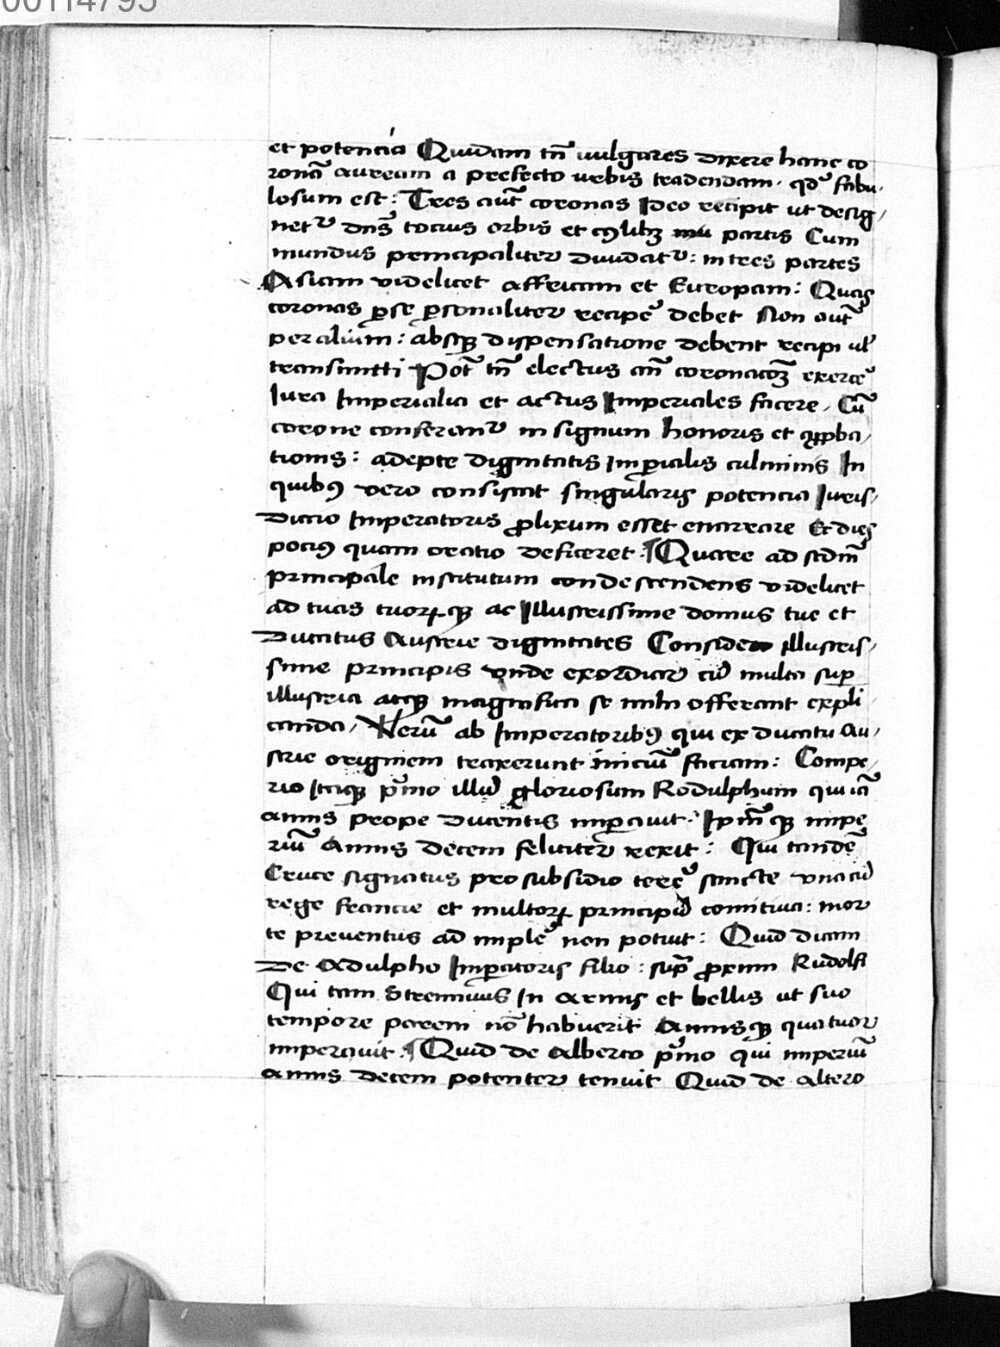 00114795
et potencia Quidam tn̄ uulgares dixere hanc co
ronā auream a prefecto urbis tradendam, qd' fabu,
losum est: Tres aut̄ coronas Ideo recipit ut desig,
net᷑ dn̄s tocius orbis et cuiuslibꝫ partis Cum
mundus principaliter diuidat᷑: in tres partes
Asiam videlicet affricam et Europam: Quas
coronas ꝑse ꝑsonaliter recipe' debet Non aut̄
per alium: absqꝫ dispensatione debent recipi ul'
transmitti Pot̄ tn̄ electus an̄ coronacōꝫ exerce'
Iura Imperialia et actus Imperiales facere, Cū
corone conferant᷑ in signum honoris et app̄ba,
tionis: adepte dignitatis Imꝑialis culminis In
quibꝰ vero consistat singularis potencia Iuris,
dictio Imperatoris ꝓlixum esset enarrare Et dies
pociꝰ quam oratio deficeret ¶ Quare ad scdm̄
principale institutum condescendens videlicet
ad tuas tuorꝝqꝫ ac Illustrissime domus tue et
Ducatus Austrie dignitates Considero illustris,
sime principis vnde exordiar cū multa suꝑ
illustria atqꝫ magnifica se mihi offerant expli
canda, Verū ab Imperatoribꝰ qui ex ducatu Au,
strie originem traxerunt iniciū faciam: Compe,
rio Itaqꝫ p'mo illū gloriosum Rodulphum qui iā
annis prope ducentis imꝑauit: Ipm̄qꝫ impe
riū Annis decem feliciter rexit: Qui tandē
Cruce signatus pro subsidio terre' sancte vna cū
rege francie et multorꝝ principū comitiua: mor
te preuentus ad imple' non potuit: Quid dicam
De Adulpho Imꝑatoris filio: supͣ ꝓximi Rudolfi
Qui tam Strennuus In armis et bellis ut suo
tempore parem nō habuerit Annisqꝫ quatuor
imperauit ¶ Quid de Alberto p'mo qui imperiū
annis decem potenter tenuit Quid de altero